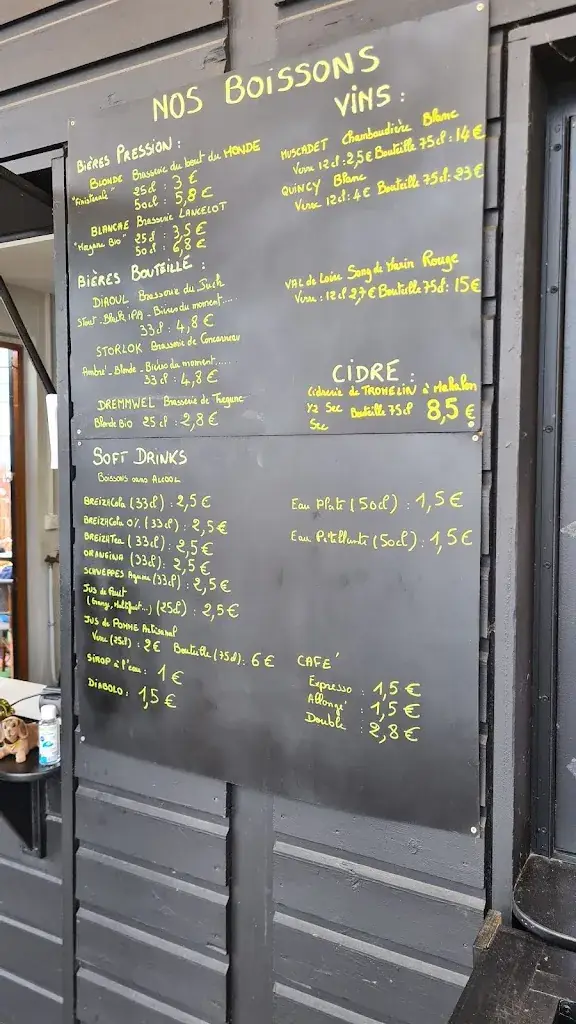 NOS BOISSONS
BIÈRES PRESSION :
BLONDE Brasserie du bout du MONDE
25cl : 3 €
50cl : 5,8 €
BLANCHE Brasserie LANCELOT
"Morgane Bio" 25 cl : 3,5 €
50 cl : 6,8 €
BIÈRES BOUTEILLE :
DIAOUL Brasserie du
Stout - Blonde, iPA - Bières du moment....
33cl : 4,8 €
STORLOK Brasserie de Concarneau
Ambré - Blonde - Bières du moment.....
33 cl : 4,8 €
DREMMWEL Brasserie de
Blonde Bio 25 cl : 2,8 €
VINS :
MUSCADET Chambaudière Blanc
Verre 12cl : 2,5 € Bouteille 75 cl : 14 €
QUINCY Blanc
Verre 12cl : 4 € Bouteille 75 cl : 23 €
VAL de Loire Rouge
Verre : 12 cl 2,7 € Bouteille 75cl : 15 €
CIDRE :
Cidrerie de TROMELIN à
1/2 Sec Bouteille 75cl 8,5 €
Sec
SOFT DRINKS
BOISSONS sans ALCOOL
BREIZHCola (33cl) : 2,5 €
BREIZHCola 0% (33cl) : 2,5 €
BREIZHTea (33cl) : 2,5 €
ORANGINA (33cl) : 2,5 €
SCHWEPPES Agrume (33cl) : 2,5 €
JUS de Fruit
(Orange, Multifruit...) (25cl) : 2,5 €
JUS de POMME Artisanal
Verre (25cl) : 2 € Bouteille (75cl) : 6 €
SIROP à l'eau : 1 €
DIABOLO : 1,5 €
Eau Plate (50cl) : 1,5 €
Eau Pétillante (50cl) : 1,5 €
CAFÉ
Expresso : 1,5 €
Allongé : 1,5 €
Double : 2,8 €